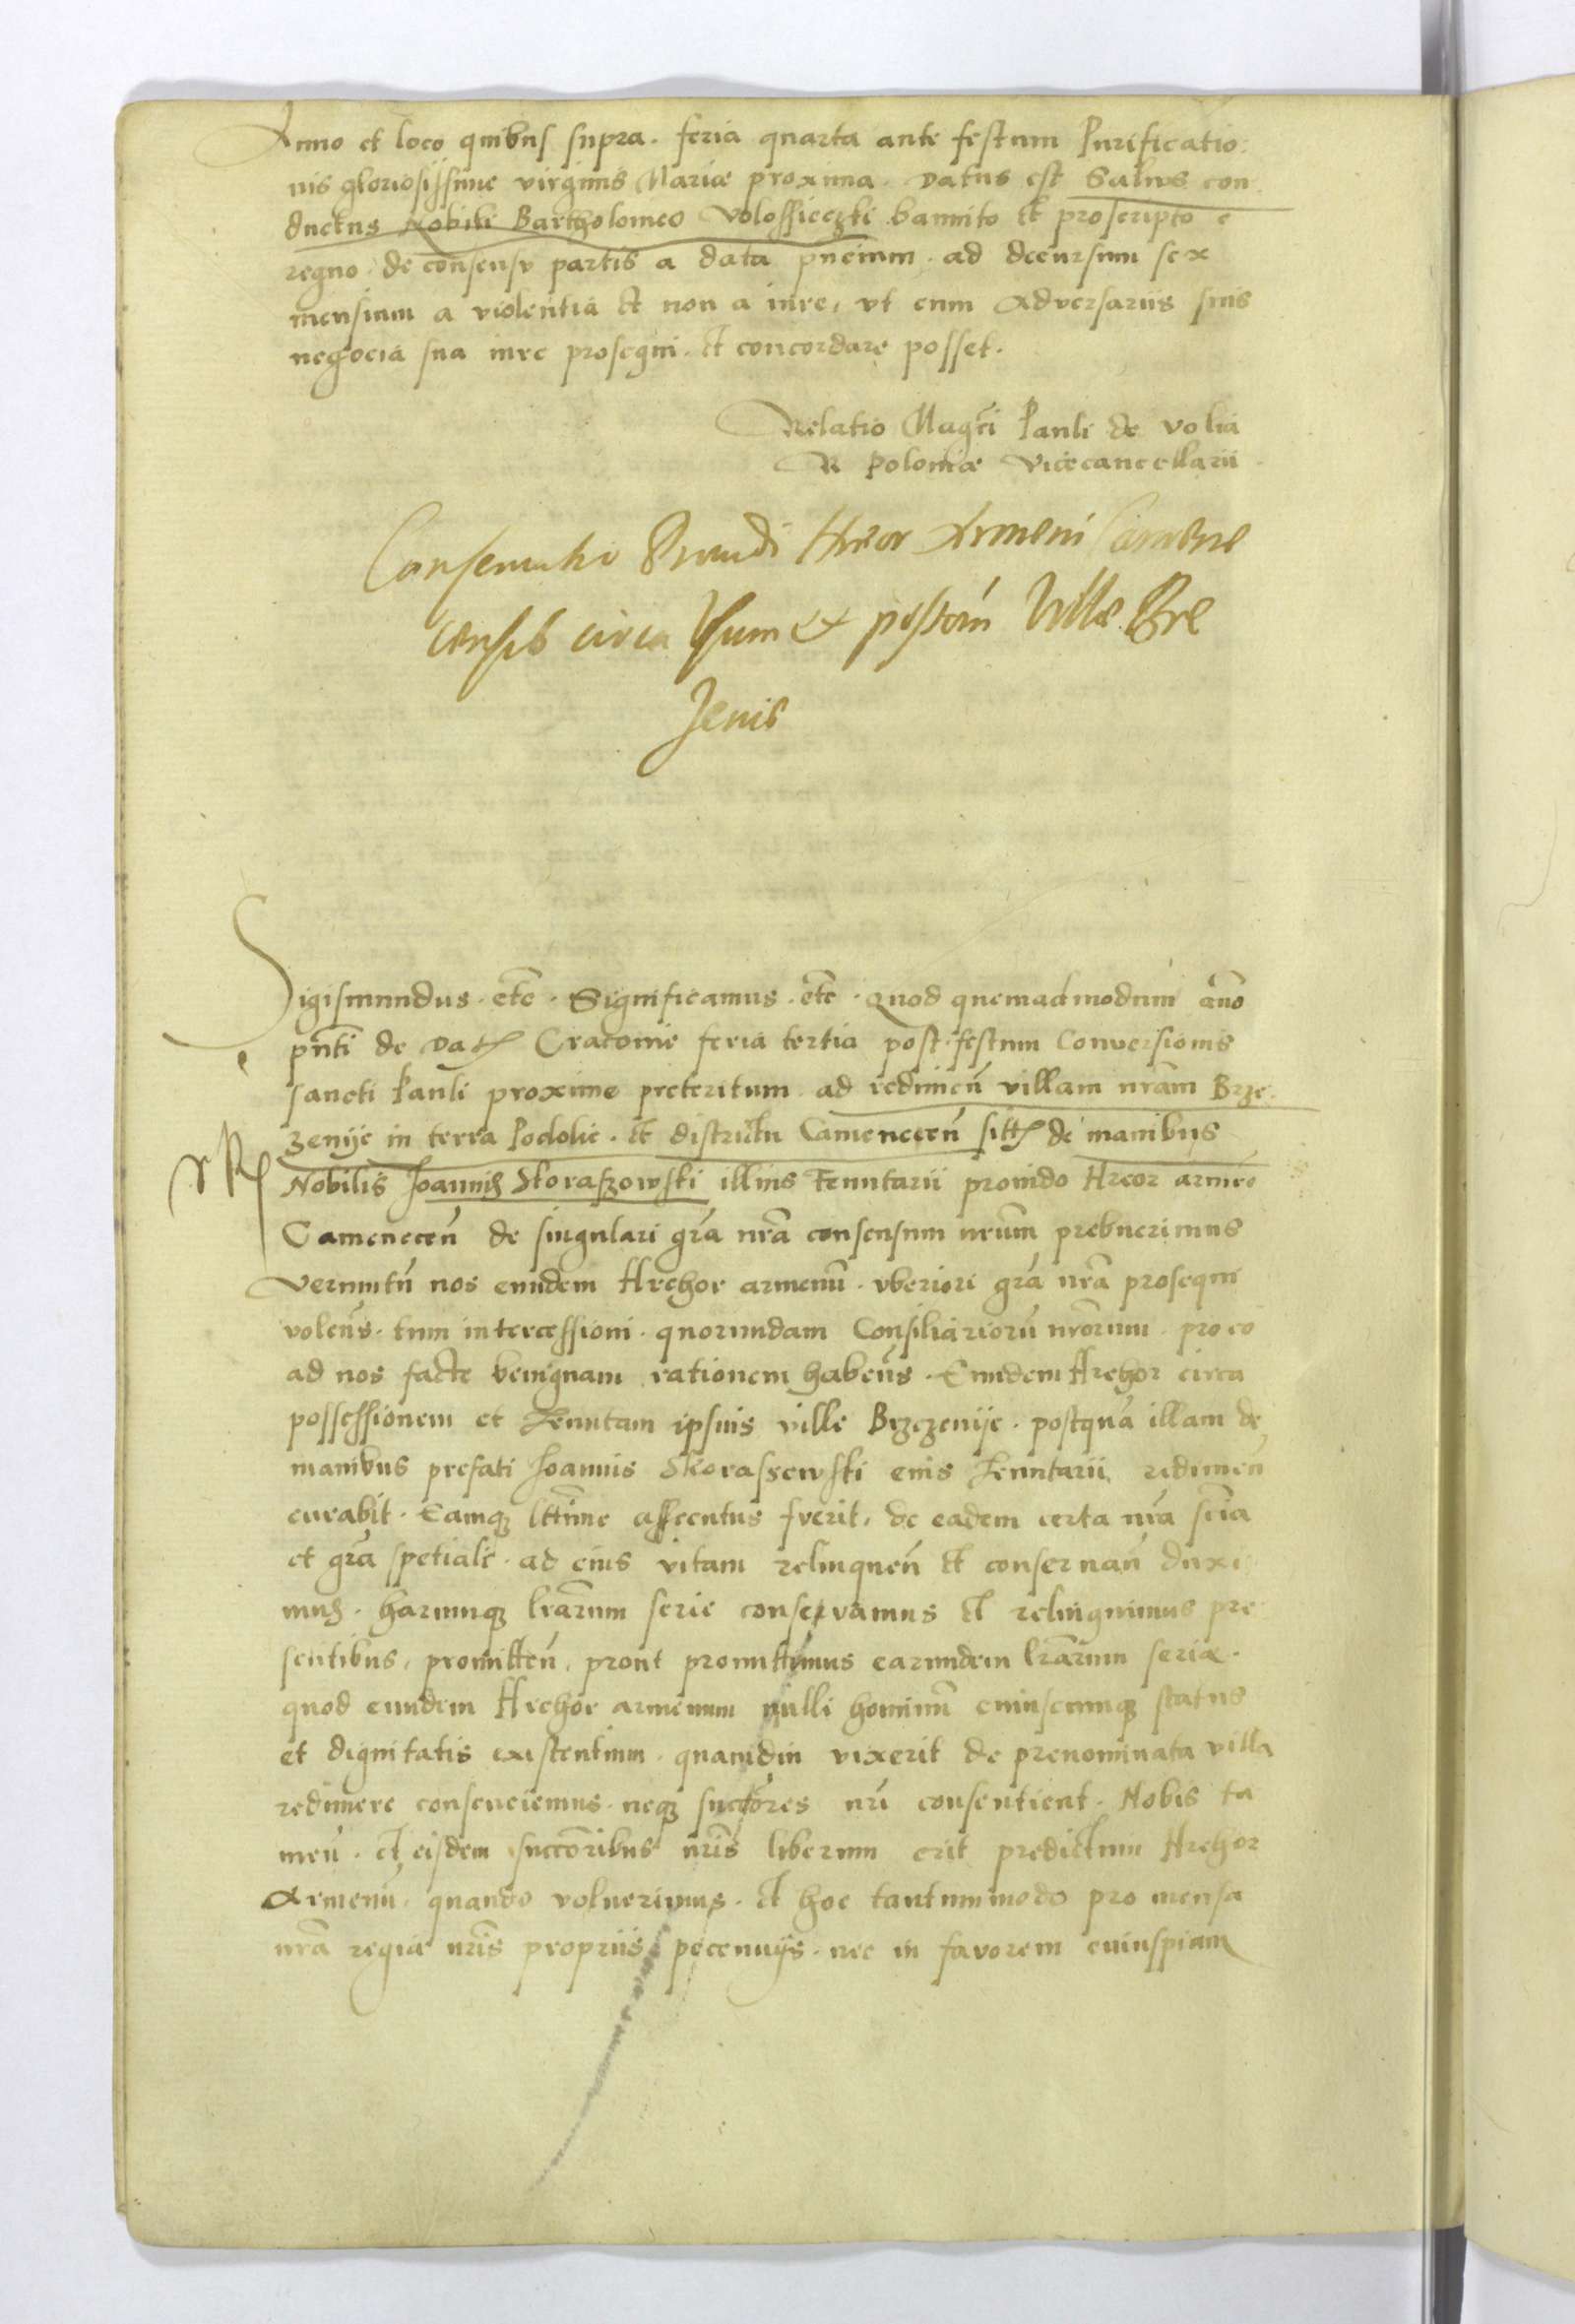 Anno et loco quibus supra. feria quarta ante festum Purificatio:
nis gloriosissime virginis Mariæ proxima. Datus est Salvus con
ductus Nobili Bartholomeo Volossieczki bannito et proscripto e
regno. de consensu partis a data pñcium. ad decursum sex
mensium a violentia et non a iure, vt cum Adversariis suis
negocia sua iure prosequi. et concordare posset.
Relatio Magci Pauli de Volia
R Poloniæ Vicecancellarii
Conservatio Providi Hreor Armeni Camene
censis circa Vsum et possōm Villæ Bre
zenis
Sigismundus. etc̄. Significamus. etc̄. Quod quemadmodum año
pñti de Datȝ Cracovie feria tertia post festum Conversionis
sancti Pauli proxime preteritum. ad redimeñ villam nr̄am Brze
zenije in terra Podolie. et districtu Cameneceñ sittȝ de manibus
Nobilis Joannis Skoraszowski illius Tenutarii provido Hreor armeo
Cameneceñ de singulari gr̄a nr̄a consensum nr̄um prebuerimus
Verumtñ nos eundem Hrehor armenū. vberiori gr̄a nr̄a prosequi
voleñs. tum intercessioni. quorundam Consiliariorū nr̄orum. pro eo
ad nos facte benignam rationem habeñs. Eundem Hrehor circa
possessionem et Tenutam ipsius ville Brzezenije. postquā illam de
manibus prefati Joannis Skorassewski eius Tenutarii redimeñ
curabit. Eamqȝ lttīme assecutus fuerit, de eadem certa nr̄a scīa
et gr̄a spetiali. ad eius vitam relinqueñ et conservañ duxi
mus. harumqȝ lr̄arum serie conservamus et relinquimus pre
sentibus, promitteñ, prout promittimus earundem lr̄arum serie.
quod eundem Hrehor armenum nulli hominū cuiuscumqȝ status
et dignitatis existentium. quamdiu vixerit de prenominata villa
redimere consenciemus. neqȝ succōres nr̄i consentient. Nobis ta
meñ. et eisdem succōribus nr̄is liberum erit predictum Hrehor
Armenū. quando voluerimus. et hoc tantummodo pro mensa
nr̄a regia nr̄is propriis pecenuijs. nec in favorem cuiuspiam